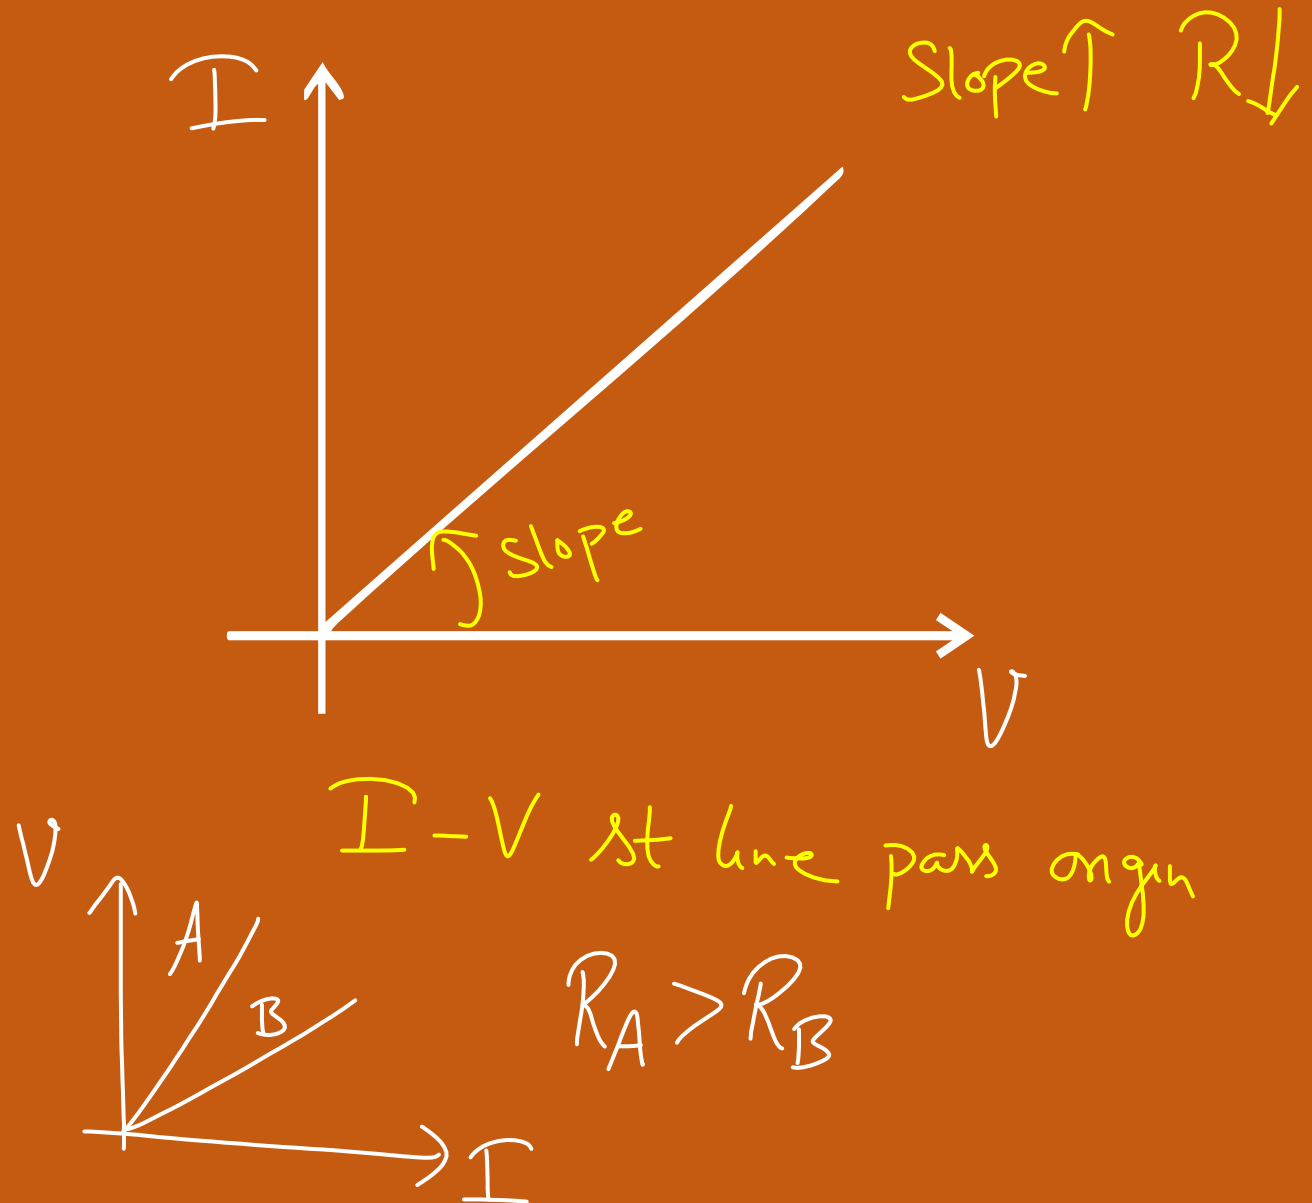 I
Slope↑ R↓
Slope
V
I-V st line pass origin
V
A
B
R_A > R_B
I